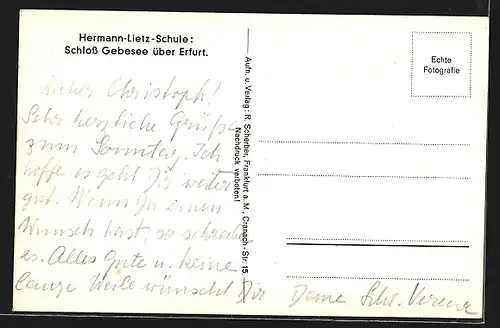 Hermann-Lietz-Schule:
Schloß Gebesee über Erfurt.
Lieber Christoph!
Sehr herzliche Grüße
zum Sonntag. Ich
hoffe es geht Dir weiter
gut. Wenn Du einen
Wunsch hast, so schreibe
es. Alles Gute u. keine
lange Weile wünscht Dir
Deine Schw. Verena
Aufn. u. Verlag: R. Scherber, Frankfurt a. M., Cranach-Str. 15.
Nachdruck verboten!
Echte
Fotografie